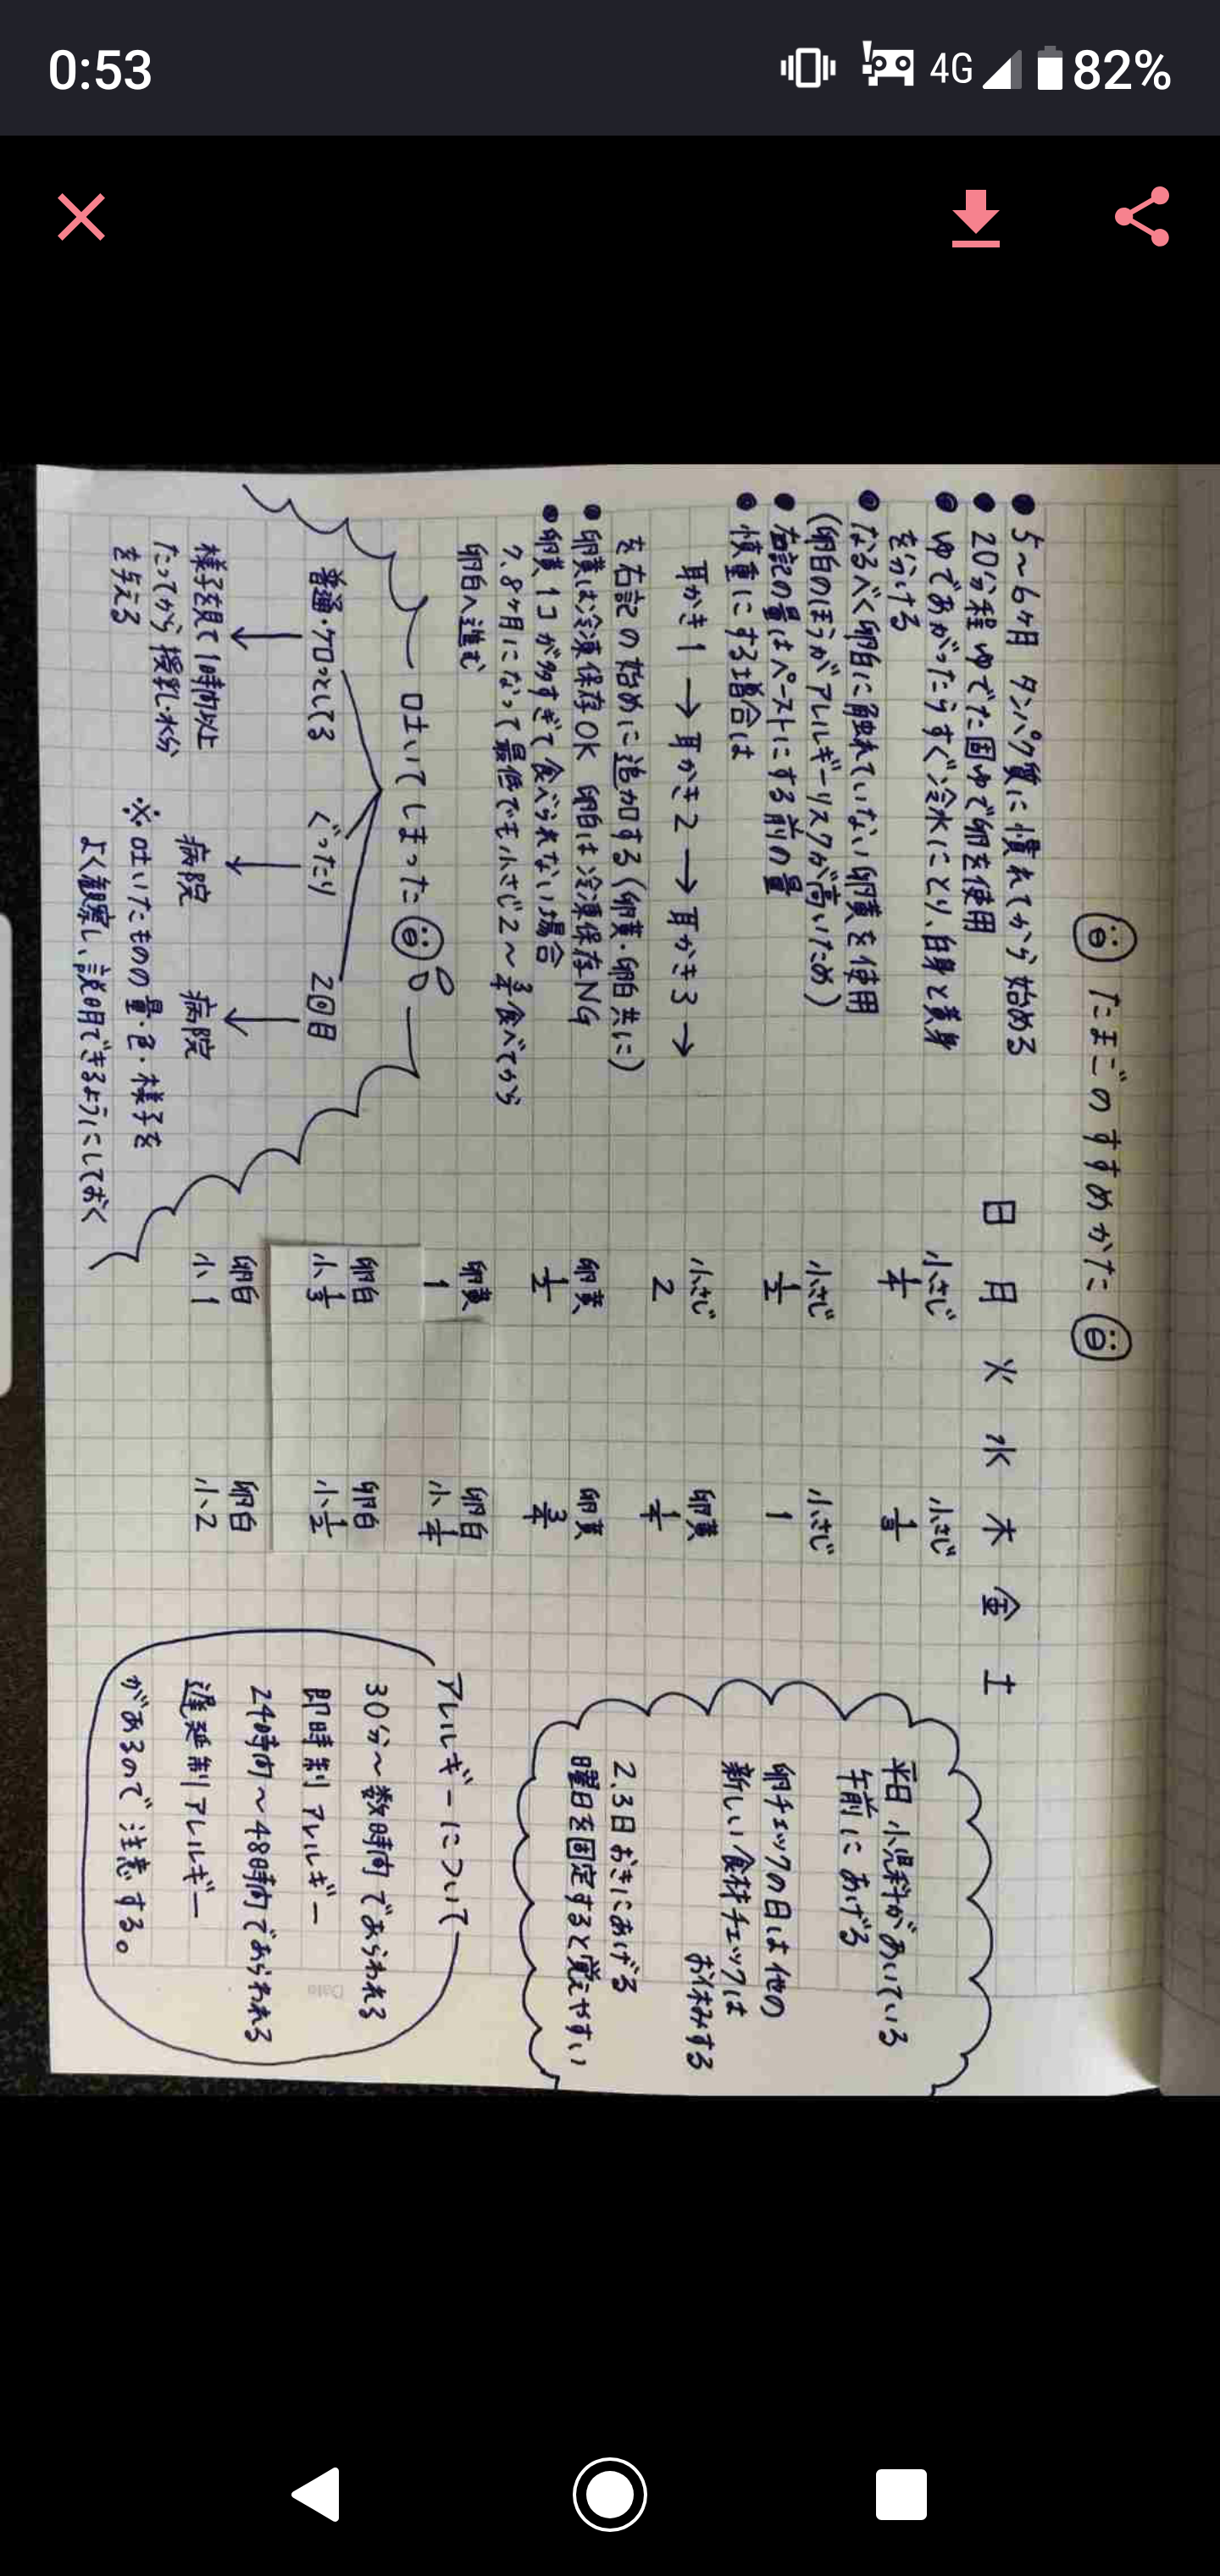 0:53
4G
82%
たまごのすすめかた
● 5〜6ヶ月 タンパク質に慣れてから始める
● 20分程 ゆでた固ゆで卵を使用
● ゆであがったらすぐ冷水にとり、白身と黄身
を分ける
● なるべく卵白に触れていない卵黄を使用
(卵白のほうがアレルギーリスクが高いため)
● 右記の量はペーストにする前の量
● 慎重にする場合は
耳かき1 → 耳かき2 → 耳かき3 →
を右記の始めに追加する(卵黄・卵白共に)
● 卵黄は冷凍保存OK 卵白は冷凍保存NG
● 卵黄1コが多すぎて食べられない場合
7.8ヶ月になって最低でも小さじ2〜3/4食べてから
卵白へ進む
吐いてしまった
普通・ケロッとしてる ぐったり 2回目
↓ ↓ ↓
様子を見て1時間以上
たってから授乳・水分
を与える
病院 病院
※吐いたものの量・色・様子を
よく観察し、説明できるようにしておく
日 月 火 水 木 金 土
小さじ 1/4 小さじ 1/3
小さじ 1/2 小さじ 1
小さじ 2 卵黄 1/4
卵黄 1/2 卵黄 3/4
卵黄 1 卵白 小 1/4
卵白 小 1/3 卵白 小 1/2
卵白 小1 卵白 小2
平日 小児科があいている
午前にあげる
卵チェックの日は他の
新しい食材チェックは
お休みする
2.3日おきにあげる
曜日を固定すると覚えやすい
アレルギーについて
30分〜数時間であらわれる
即時制アレルギー
24時間〜48時間であらわれる
遅延制アレルギー
があるので注意する。
Date